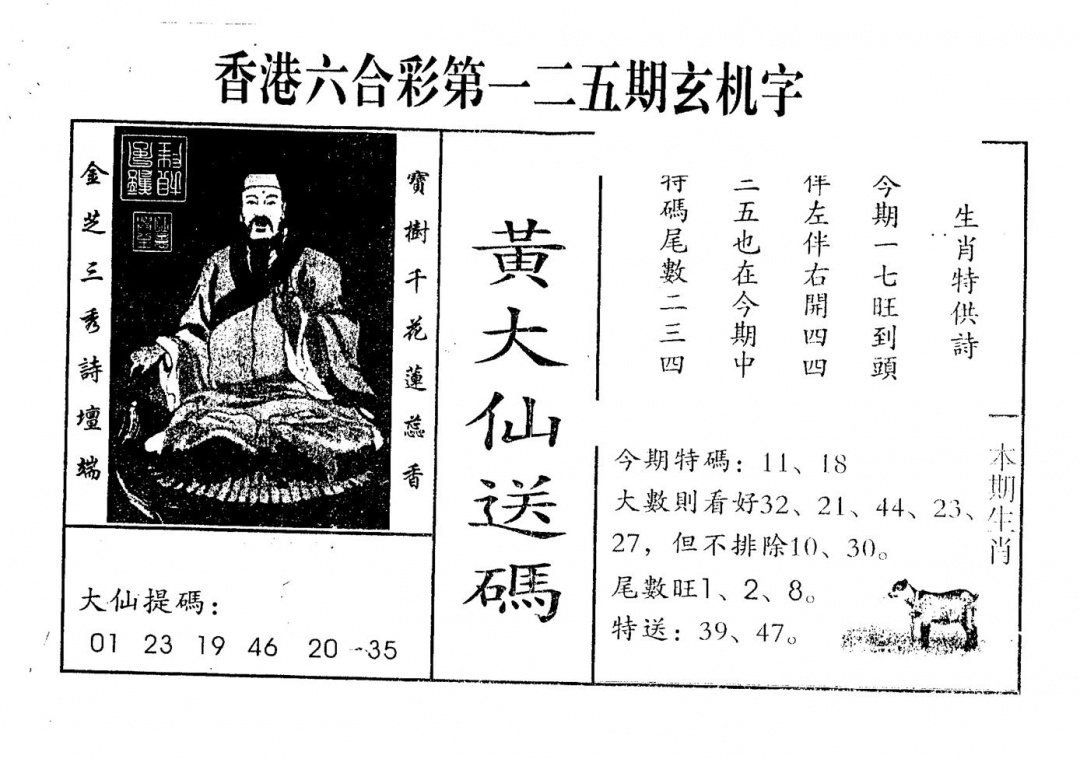 香港六合彩第一二五期玄机字
寶樹千花蓮蕊香
金芝三秀詩壇端
大仙提碼：
01 23 19 46 20 35
黃大仙送碼
生肖特供詩
今期一七旺到頭
伴左伴右開四四
二五也在今期中
特碼尾數二三四
今期特碼：11、18
大數則看好32、21、44、23、
27，但不排除10、30。
尾數旺1、2、8。
特送：39、47。
一本期生肖